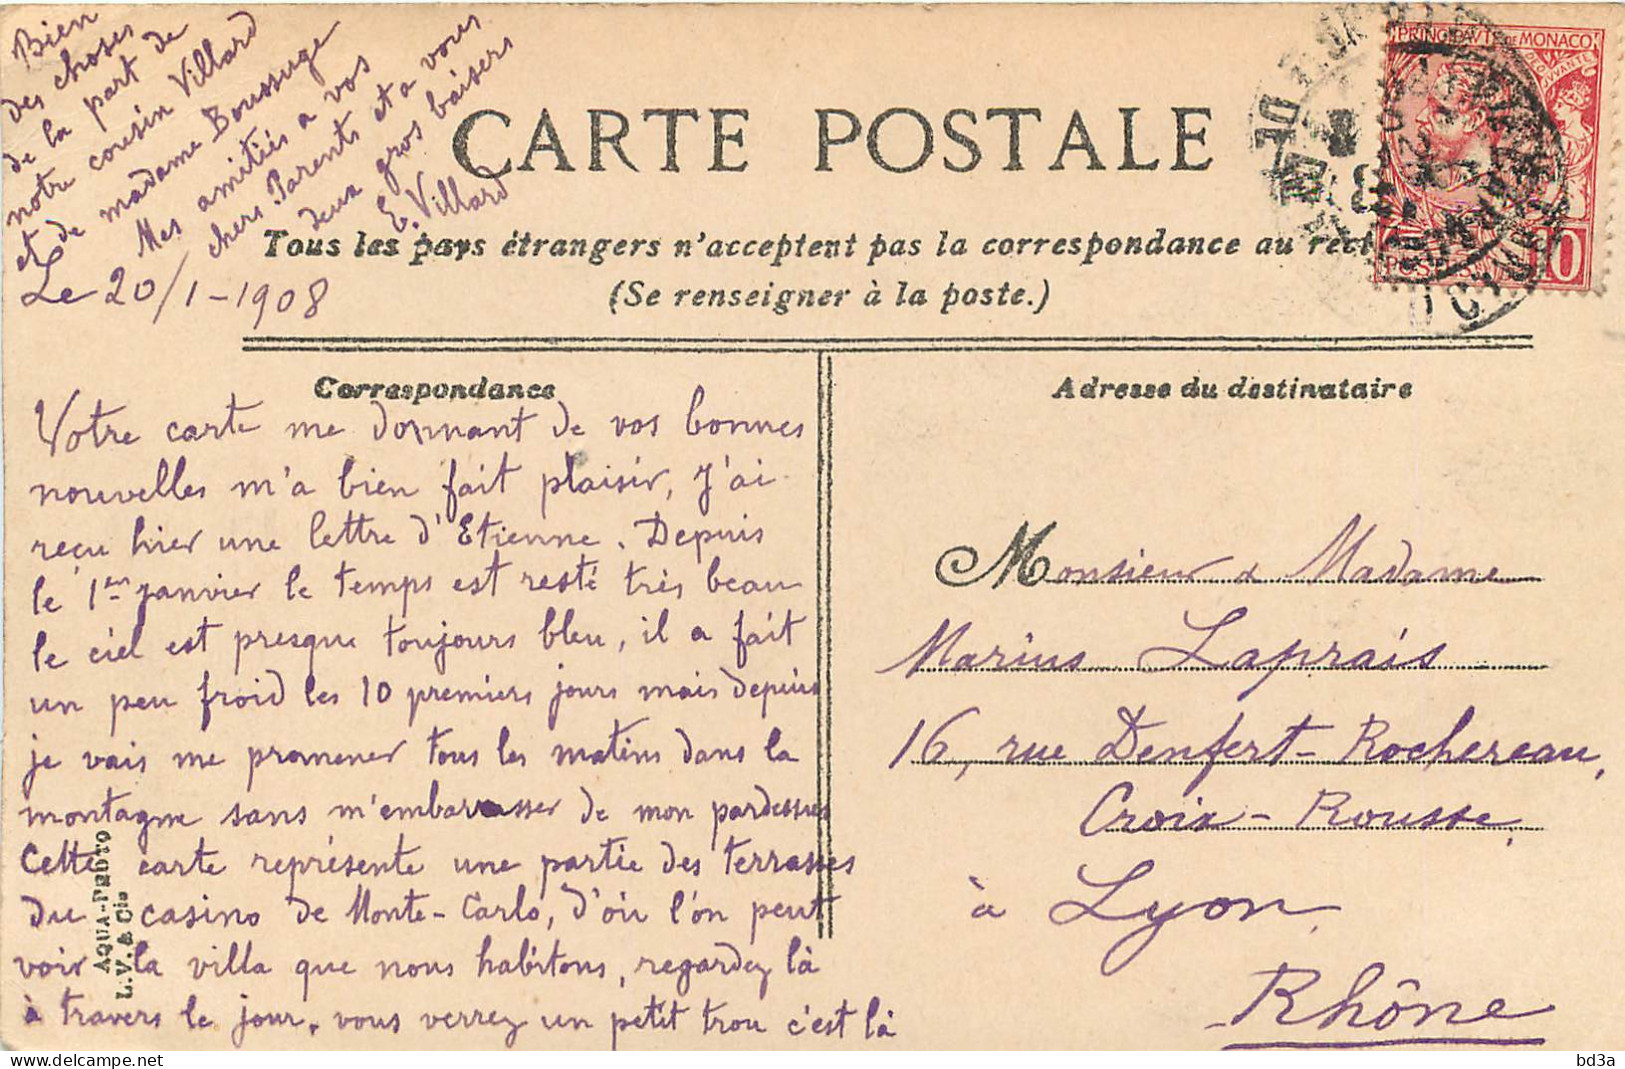 Bien
des choses
de la part de
notre cousin Villard
et de madame Boussuge
Mes amitiés a vos
chers Parents et a vous
deux gros baisers
E. Villard
Le 20/1-1908
CARTE POSTALE
Tous les pays étrangers n'acceptent pas la correspondance au recto
(Se renseigner à la poste.)
PRINCIPAUTÉ DE MONACO
DEO JUVANTE
POSTES 10
Correspondance
Votre carte me donnant de vos bonnes
nouvelles m'a bien fait plaisir, j'ai
reçu hier une lettre d'Etienne. Depuis
le 1er janvier le temps est resté très beau
le ciel est presque toujours bleu, il a fait
un peu froid les 10 premiers jours mais depuis
je vais me promener tous les matins dans la
montagne sans m'embarrasser de mon pardessus
Cette carte représente une partie des terrasses
du casino de Monte-Carlo, d'où l'on peut
voir la villa que nous habitons, regardez là
à travers le jour, vous verrez un petit trou c'est là
AQUA-PHOTO
L.V. & Cie
Adresse du destinataire
Monsieur & Madame
Marius Laprais
16, rue Denfert-Rochereau,
Croix-Rousse,
à Lyon
Rhône
bd3a